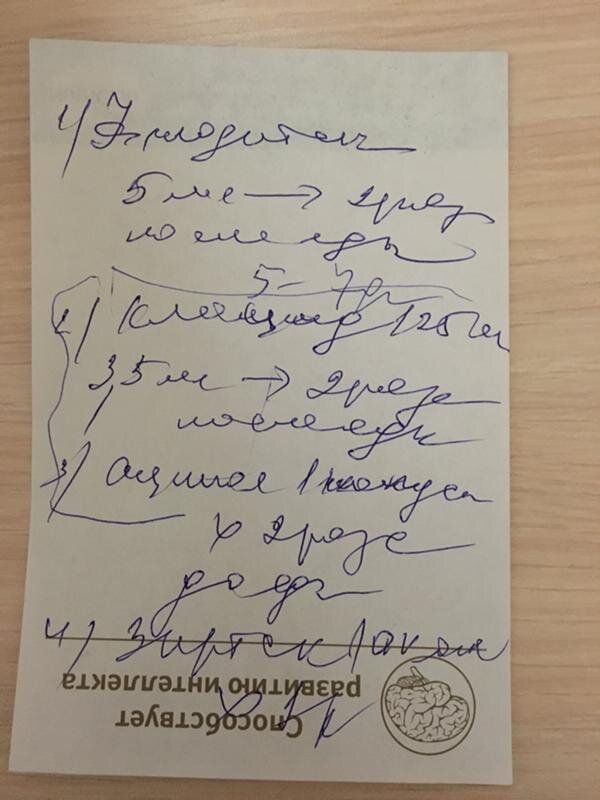 1) Эмодитек
5 мл → 2 раза
после еды
5-7 д
2) Клацид 125 мг
3,5 мл → 2 раза
после еды
3) Аципол 1 капсула
х 2 раза
до еды
4) Зиртек
х 1 р
Способствует
развитию интеллекта